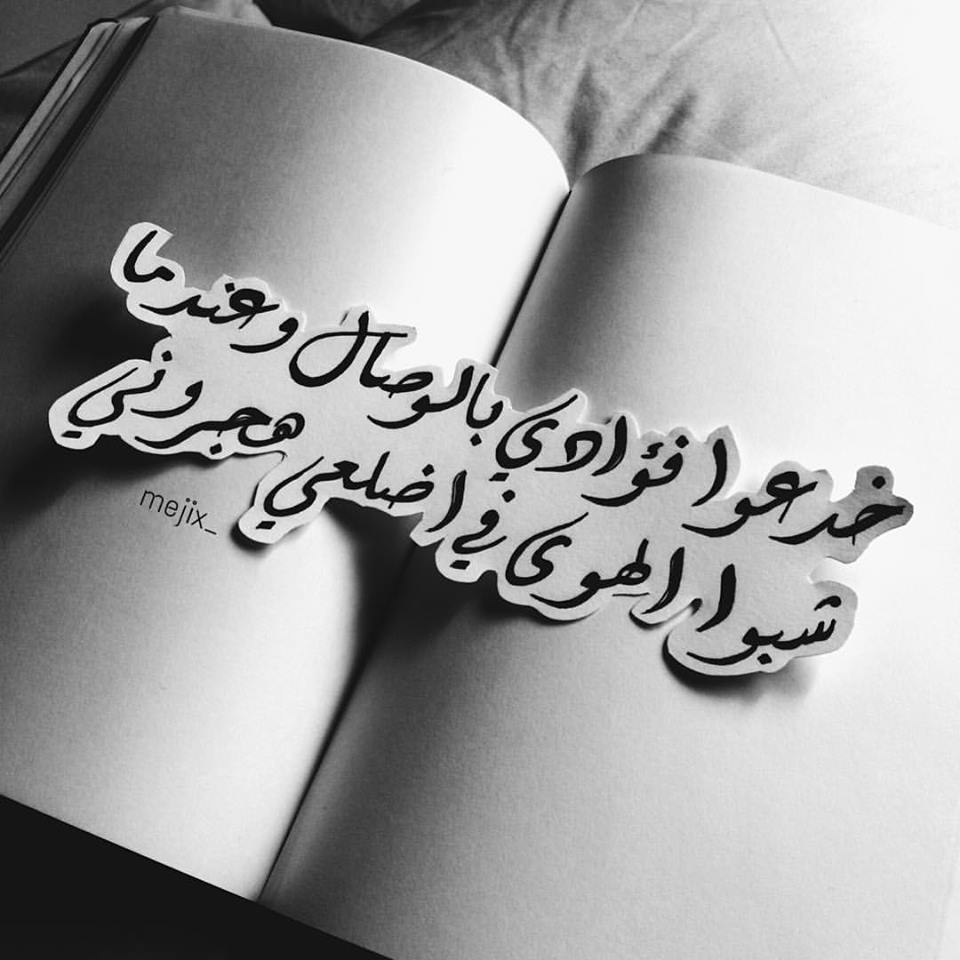 خدعوا فؤادي بالوصال وعندما
شبوا الهوى في اضلعي هجروني
mejix_